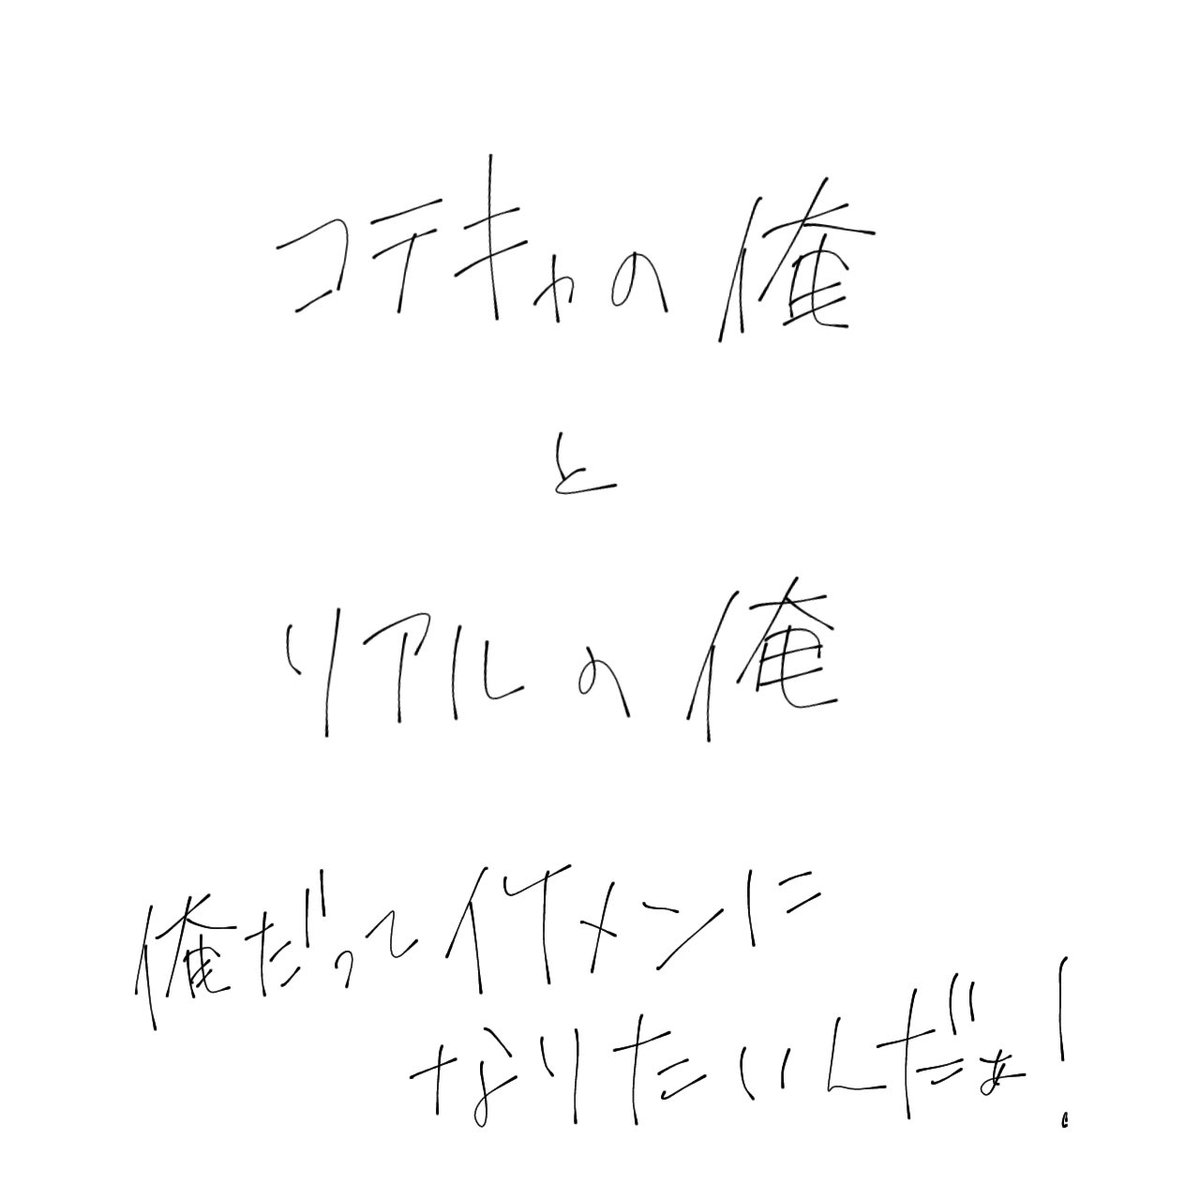 コテキャの俺
と
リアルの俺
俺だってイケメンに
なりたいんだぁ!